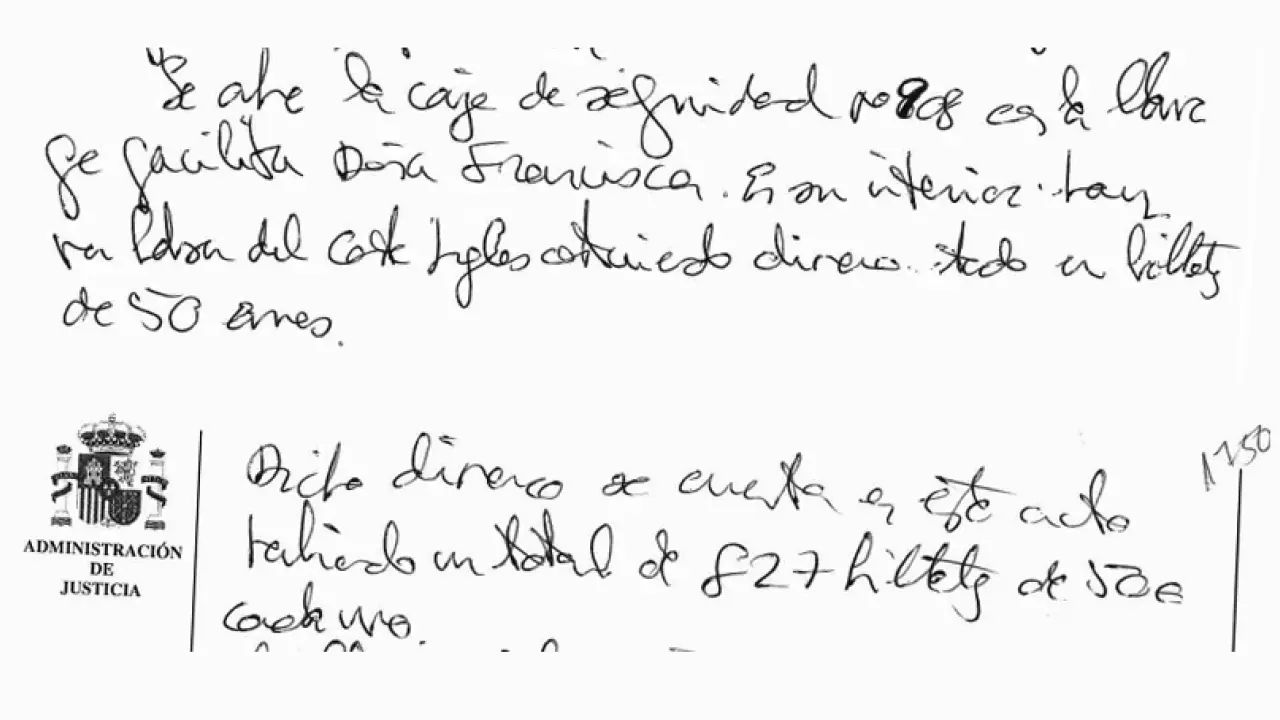 Se abre la caja de seguridad nº 98 con la llave
qe facilita Doña Francisca. En su interior hay
una bolsa del Corte Ingles conteniendo dinero todo en billetes
de 50 euros.
Dicho dinero se cuenta en este acto
habiendo un total de 827 billetes de 50 €
cada uno.
1750
ADMINISTRACIÓN
DE
JUSTICIA